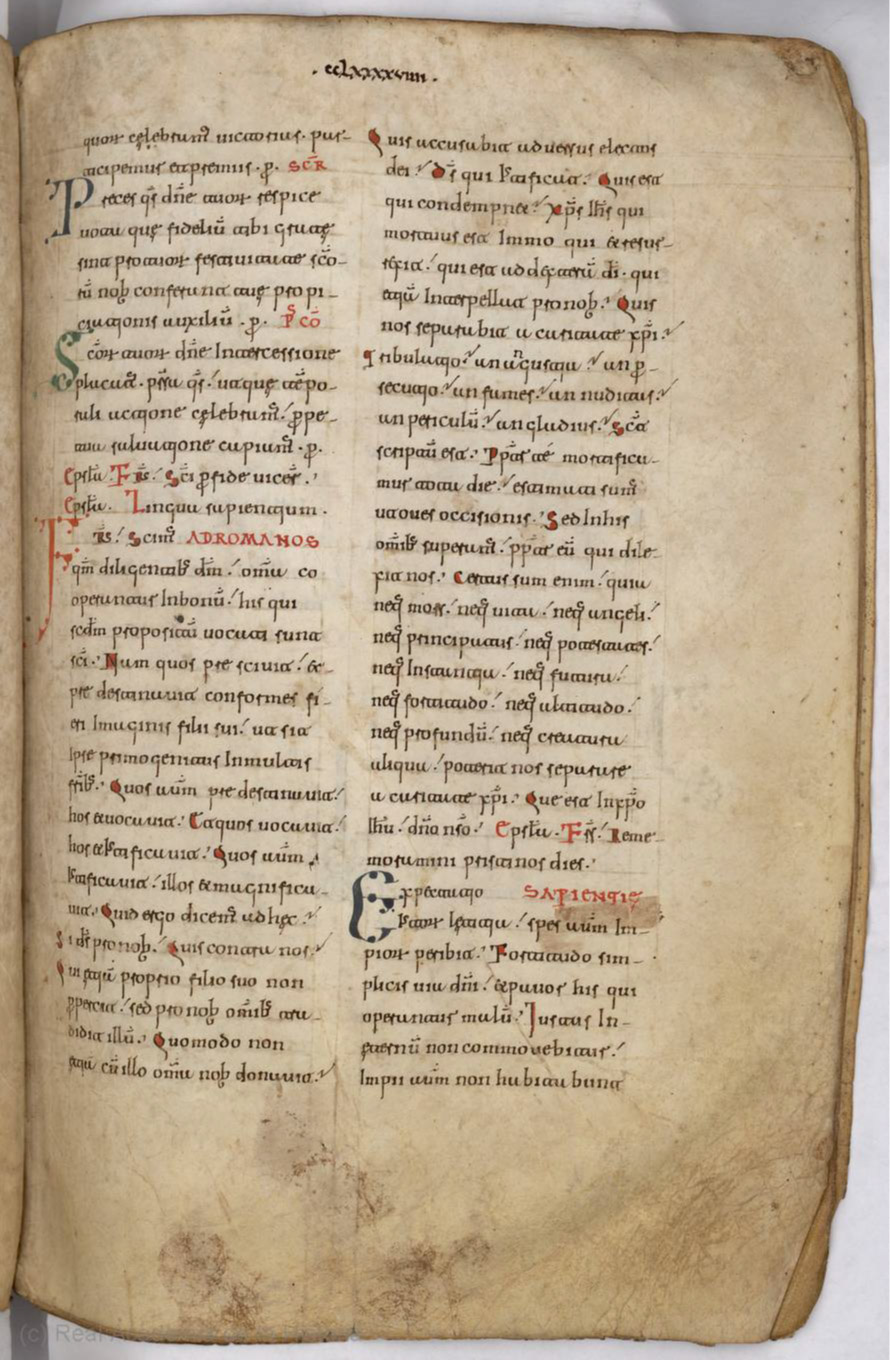 · ccLxxxxviiii ·
quor celebramus uicarius · pur-
ticipemus et premiis · p̄ · SCR̄
Preces q̄s dn̄e tuor respice
uotau que fideliū tibi grate
sint pro tuor festiuitate sc̄o-
rū nob̄ conferant atque propi-
ciationis auxiliū · p̄ · P̄ CŌ
Sc̄or tuor dn̄e Intercessione
placatus · prsta q̄s · ut que tēpo-
rali actione celebramus perpe-
tua saluatione capiamus · p̄ ·
Epstl̄a Frs̄ Sc̄i per fide uicer̄ ·
Epstl̄a · Lingua sapientium ·
Frs̄ Scim̄ ADROMANOS
qm̄ diligentib; dm̄ omia co
operantur Inbonū his qui
scdm̄ propositū uocati sunt
sc̄i · Nam quos prescivit et
predestinavit conformes fi-
eri Imaginis filii sui ut sit
Ipse primogenitus Inmultis
frib; Quos autem predestinavit
hos et vocavit · Et quos vocavit
hos et Iustificavit · Quos autem
Iustificavit illos et magnifica-
vit · Quid ergo dicem̄ ad hec
Si ds̄ pro nob̄ · Quis contra nos
Qui etiā proprio filio suo non
pepercit sed pro nob̄ omib; tra-
didit illū · Quomodo non
etiā cū illo omia nob̄ donavit
Quis accusabit adversus electos
dei Ds̄ qui Iustificat Quis est
qui condempnet xp̄s Ihs̄ qui
mortuus est Immo qui et resur-
rexit qui est ad dexterā dī · qui
etiā Interpellat pro nob̄ · Quis
nos separabit a caritate xp̄i
Tribulatio an angustia an per-
secutio an fames an nuditas
an periculū an gladius Sc̄t
scriptū est · Propter te mortifica-
mur tota die estimati sumus
ut oues occisionis · Sed Inhis
omib; superam̄ propter eū qui dile-
xit nos · Certus sum enim quia
neq; mors neq; vita neq; angeli
neq; principatus neq; potestates
neq; Instantia neq; futura
neq; fortitudo neq; altitudo
neq; profundū neq; creatura
aliqua poterit nos separare
a caritate xp̄i · Que est In xp̄o
Ihū dn̄o nr̄o · Epstl̄a · Frs̄ Reme-
moramini pristinos dies ·
Expectatio SAPIENTIE
Iustor letitia spes autem Im-
pior peribit · Fortitudo sim-
plicis via dn̄i et pavor his qui
operantur malū · Iustus In-
eternū non commovebitur
Impii autem non habitabunt